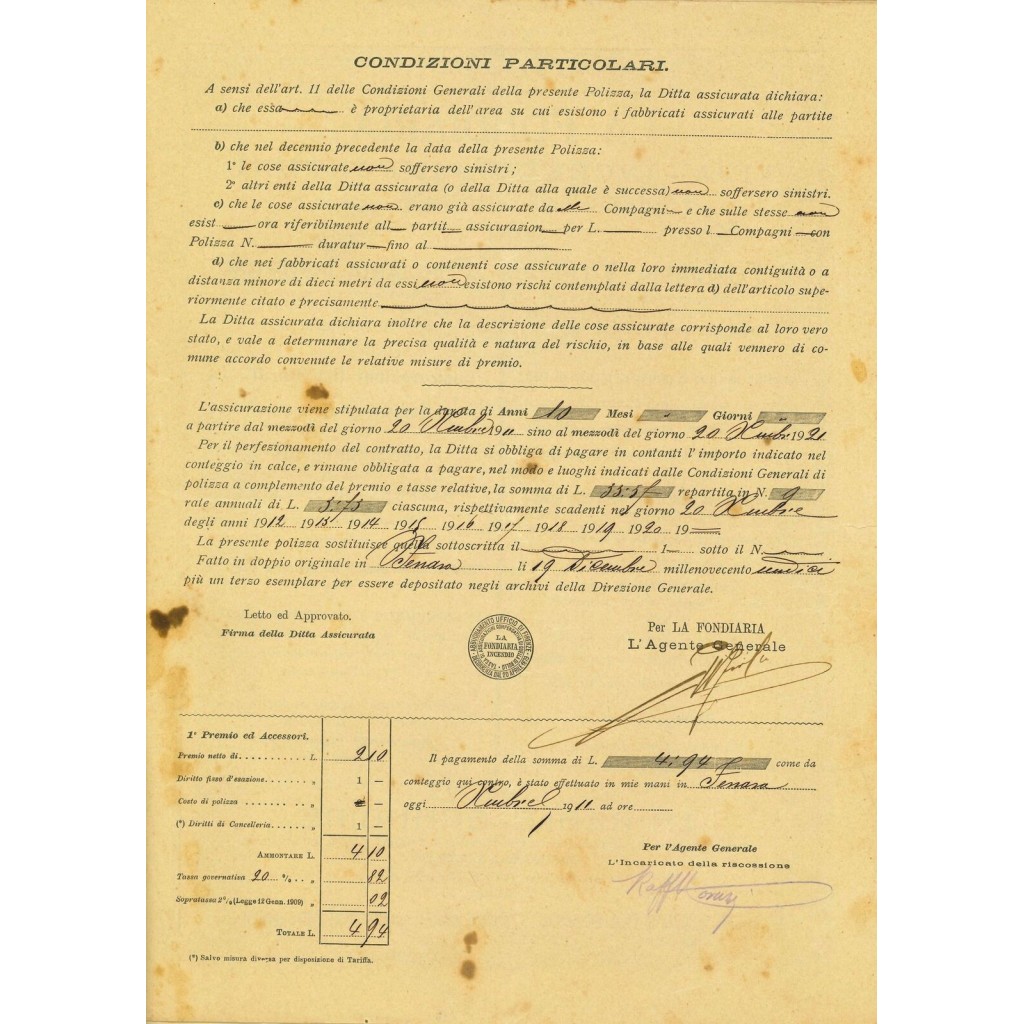 CONDIZIONI PARTICOLARI.
A sensi dell'art. 11 delle Condizioni Generali della presente Polizza, la Ditta assicurata dichiara:
a) che essa è proprietaria dell'area su cui esistono i fabbricati assicurati alle partite
b) che nel decennio precedente la data della presente Polizza:
1º le cose assicurate non soffersero sinistri;
2º altri enti della Ditta assicurata (o della Ditta alla quale è successa) non soffersero sinistri.
c) che le cose assicurate non erano già assicurate da Compagni e che sulle stesse non
esist ora riferibilmente all partit assicurazion per L. presso l Compagni con
Polizza N. duratur fino al
d) che nei fabbricati assicurati o contenenti cose assicurate o nella loro immediata contiguità o a
distanza minore di dieci metri da essi non esistono rischi contemplati dalla lettera d) dell'articolo supe-
riormente citato e precisamente
La Ditta assicurata dichiara inoltre che la descrizione delle cose assicurate corrisponde al loro vero
stato, e vale a determinare la precisa qualità e natura del rischio, in base alle quali vennero di co-
mune accordo convenute le relative misure di premio.
L'assicurazione viene stipulata per la durata di Anni 10 Mesi Giorni
a partire dal mezzodì del giorno 20 Xmbre 1911 sino al mezzodì del giorno 20 Xmbre 1921
Per il perfezionamento del contratto, la Ditta si obbliga di pagare in contanti l'importo indicato nel
conteggio in calce, e rimane obbligata a pagare, nel modo e luoghi indicati dalle Condizioni Generali di
polizza a complemento del premio e tasse relative, la somma di L. repartita in N. 9
rate annuali di L. ciascuna, rispettivamente scadenti nel giorno 20 Xmbre
degli anni 1912 1913 1914 1915 1916 1917 1918 1919 1920 19
La presente polizza sostituisce quella sottoscritta il 1 sotto il N.
Fatto in doppio originale in Ferrara li 19 Dicembre millenovecento undici
più un terzo esemplare per essere depositato negli archivi della Direzione Generale.
Letto ed Approvato.
Firma della Ditta Assicurata
LA
FONDIARIA
INCENDIO
Per LA FONDIARIA
L'Agente Generale
1º Premio ed Accessori.
Premio netto di L. 2 10
Diritto fisso d'esazione „ 1 —
Costo di polizza „ —
(*) Diritti di Cancelleria „ 1 —
AMMONTARE L. 4 10
Tassa governativa 20 % „ 82
Sopratassa 2% (Legge 12 Genn. 1909) „ 02
TOTALE L. 4 94
(*) Salvo misura diversa per disposizione di Tariffa.
Il pagamento della somma di L. 4:94 come da
conteggio qui contro, è stato effettuato in mie mani in Ferrara
oggi Xmbre 1911 ad ore
Per l'Agente Generale
L'Incaricato della riscossione